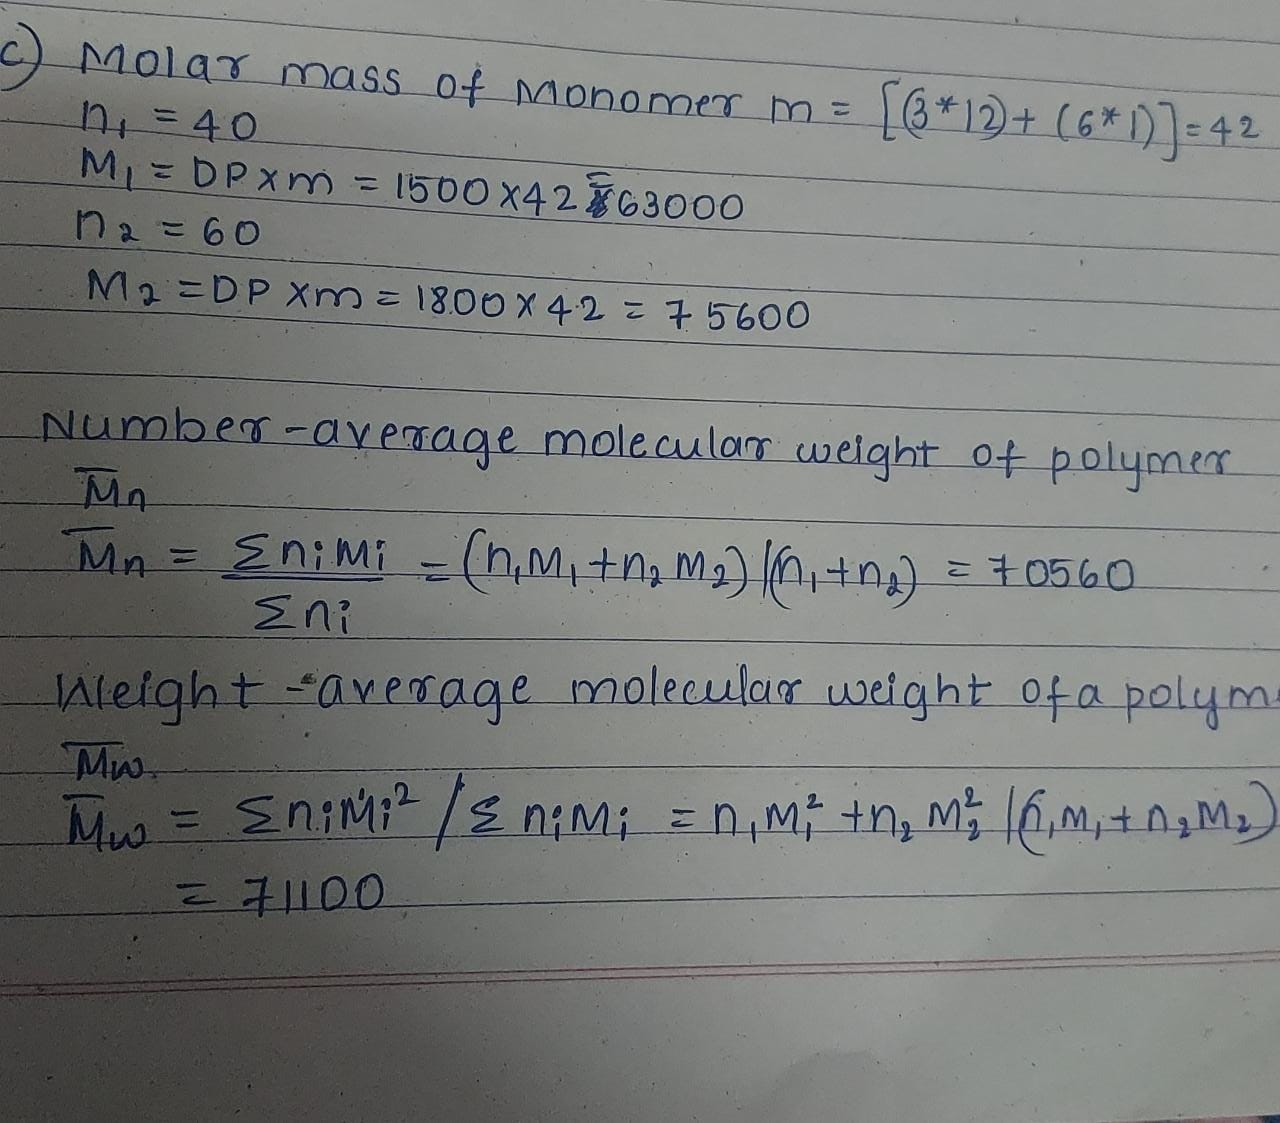 c) Molar mass of Monomer m = [(3*12)+(6*1)]=42
n₁ = 40
M₁ = DP×m = 1500×42 = 63000
n₂ = 60
M₂ = DP×m = 1800×42 = 75600
Number-average molecular weight of polymer
M̅n
M̅n = ΣniMi / Σni = (n₁M₁+n₂M₂)/(n₁+n₂) = 70560
Weight-average molecular weight of a polym
M̅w
M̅w = ΣniMi² / ΣniMi = n₁M₁²+n₂M₂²/(n₁M₁+n₂M₂)
= 71100